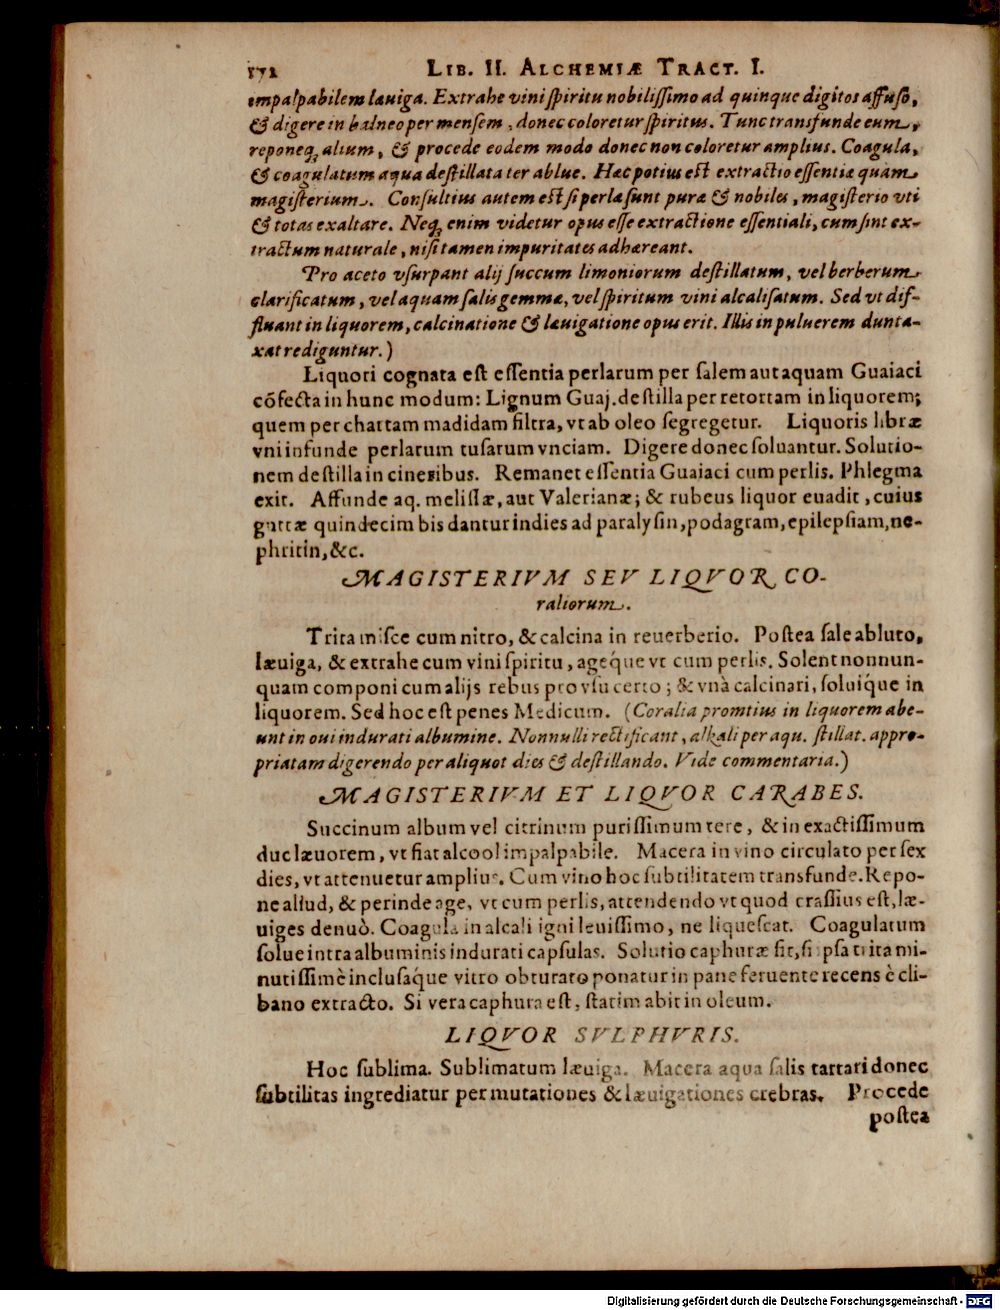 172 LIB. II. ALCHEMIÆ TRACT. I.
impalpabilem lauiga. Extrahe vini ſpiritu nobiliſſimo ad quinque digitos affuſo,
& digere in balneo per menſem, donec coloretur ſpiritus. Tunc transfunde eum,
reponeq; alium, & procede eodem modo donec non coloretur amplius. Coagula,
& coagulatum aqua deſtillata ter ablue. Hæc potius eſt extractio eſſentiæ quam
magiſterium. Conſultius autem eſt ſi perlæ ſunt puræ & nobiles, magiſterio vti
& totas exaltare. Neq; enim videtur opus eſſe extractione eſſentiali, cum ſint ex-
tractum naturale, niſi tamen impuritates adhæreant.
Pro aceto vſurpant alij ſuccum limoniorum deſtillatum, vel berberum
clarificatum, vel aquam ſalis gemmæ, vel ſpiritum vini alcaliſatum. Sed vt dif-
fluant in liquorem, calcinatione & lauigatione opus erit. Illis in puluerem dunta-
xat rediguntur.)
Liquori cognata eſt eſſentia perlarum per ſalem aut aquam Guaiaci
cõfecta in hunc modum: Lignum Guaj. deſtilla per retortam in liquorem;
quem per chartam madidam filtra, vt ab oleo ſegregetur. Liquoris libræ
vni infunde perlarum tuſarum vnciam. Digere donec ſoluantur. Solutio-
nem deſtilla in cineribus. Remanet eſſentia Guaiaci cum perlis. Phlegma
exit. Affunde aq. meliſſæ, aut Valerianæ; & rubeus liquor euadit, cuius
guttæ quindecim bis dantur indies ad paralyſin, podagram, epilepſiam, ne-
phritin, &c.
MAGISTERIVM SEV LIQVOR CO-
raliorum.
Trita miſce cum nitro, & calcina in reuerberio. Poſtea ſale abluto,
læuiga, & extrahe cum vini ſpiritu, agéque vt cum perlis. Solent nonnun-
quam componi cum alijs rebus pro vſu certo; & vnà calcinari, ſoluique in
liquorem. Sed hoc eſt penes Medicum. (Coralia promtius in liquorem abe-
unt in oui indurati albumine. Nonnulli rectificant, alkali per aqu. ſtillat. appro-
priatam digerendo per aliquot dies & deſtillando. Vide commentaria.)
MAGISTERIVM ET LIQVOR CARABES.
Succinum album vel citrinum puriſſimum tere, & in exactiſſimum
duc læuorem, vt fiat alcool impalpabile. Macera in vino circulato per ſex
dies, vt attenuetur amplius. Cum vino hoc ſubtilitatem transfunde. Repo-
ne aliud, & perinde age, vt cum perlis, attendendo vt quod craſſius eſt, læ-
uiges denuò. Coagula in alcali igni leuiſſimo, ne liqueſcat. Coagulatum
ſolue intra albuminis indurati capſulas. Solutio caphuræ fit, ſi ipſa trita mi-
nutiſſimè incluſaque vitro obturato ponatur in pane feruente recens è cli-
bano extracto. Si vera caphura eſt, ſtatim abit in oleum.
LIQVOR SVLPHVRIS.
Hoc ſublima. Sublimatum læuiga. Macera aqua ſalis tartari donec
ſubtilitas ingrediatur per mutationes & læuigationes crebras. Procede
poſtea
Digitalisierung gefördert durch die Deutsche Forschungsgemeinschaft - DFG